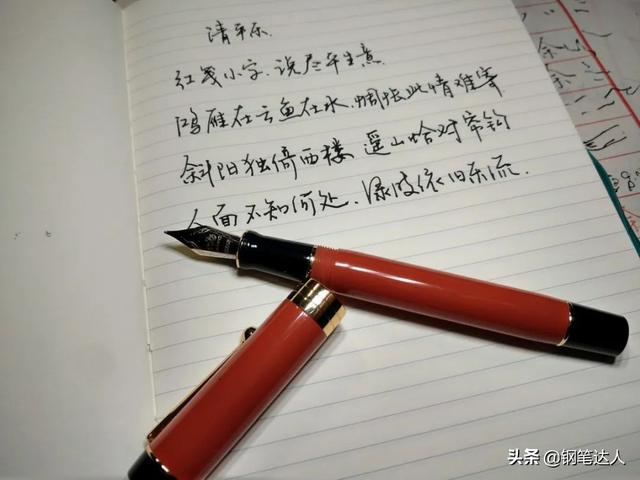 清平乐
红笺小字.说尽平生意.
鸿雁在云鱼在水.惆怅此情难寄
斜阳独倚西楼 遥山恰对帘钩
人面不知何处.绿波依旧东流.
头条 @钢笔达人